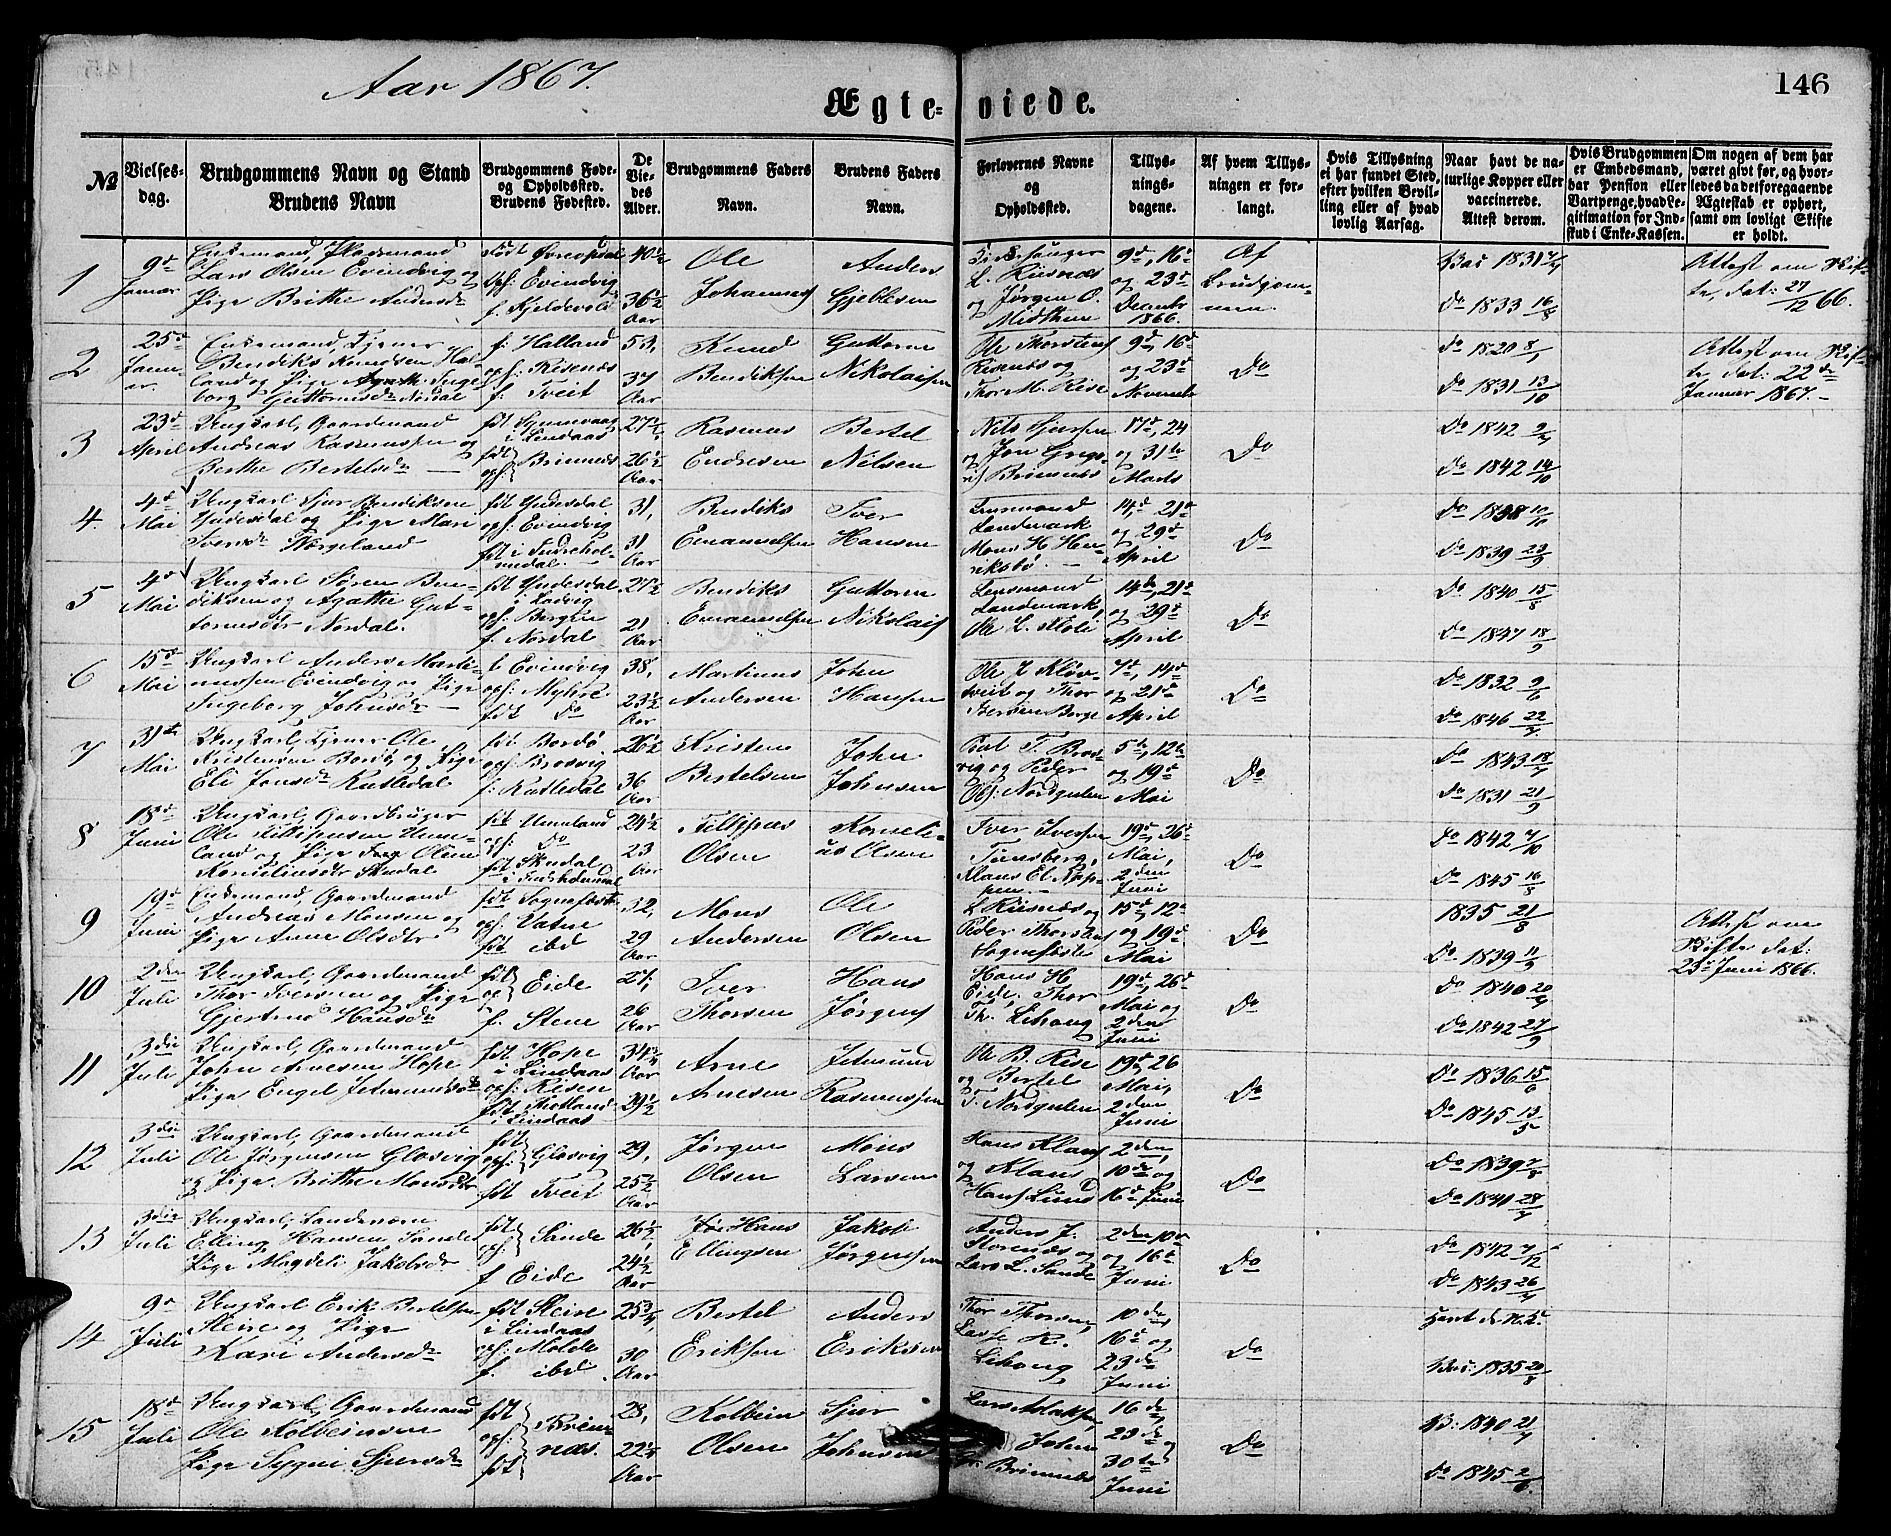 Aar 1867.
146
Ægte-viede.
№
Vielses-
dag.
Brudgommens Navn og Stand
Brudens Navn
Brudgommens Føde-
og Opholdssted.
Brudens Fødested.
De
Vie-
des
Alder.
Brudgommens Faders
Navn.
Brudens Faders
Navn.
Forlovernes Navne
og
Opholdssted.
Tillys-
nings-
dagene.
Af hvem Tillys-
ningen er for-
langt.
Hvis Tillysning
ei har fundet Sted,
efter hvilken Bevil-
ling eller af hvad
lovlig Aarsag.
Naar havt de na-
turlige Kopper eller
vaccinerede.
Attest derom.
Hvis Brudgommen
er Embedsmand,
har Pension eller
Vartpenge, hvad Le-
gitimation for Ind-
skud i Enke-Kassen.
Om nogen af dem har
været givt før, og hvor-
ledes da det foregaaende
Ægteskab er ophørt,
samt om lovligt Skifte
er holdt.
1
9de
Januar
Enkemand, Pladsmand
Lars Olsen Evindvig og
Pige Brithe Andersdr
opf. Evindvig
f. Kjeldevold
40½
36½
Aar
Ole
Johannes
Anders
Gjeblesen
L. Riisnæs
og Jørgen O.
Midthun
9de, 16de
og 23de
Decembr
1866.
Af
Brudgom-
men.
Vac 1831
Do 1833 16/8
Attest om Skif-
te, dat: 27/12 66.
2
25de
Janu-
ar
Enkemand, Tjener
Bendiks Knudsen Hal-
land og Pige Agathe Inge-
borg Guttormsdr Nordal
f. Halland
opf. Risenæs
f. Tveit
53,
37
Aar
Knud
Bendiksen
Guttorm
Nikolaisen
Ole Thorstens
Risenæs og
Thor M. Rise
9de, 16de
og 23de
Novembr
Do
Do 1820 8/1
Do 1831 13/10
Attest om Skif-
te dat: 22de
Januar 1867. -
3
23de
April
Ungkarl, Gaardmand
Andreas Rasmussen og
Berthe Bertelsdr
i Lindaas
fdt
opf. Brimnæs
27½,
26½
Aar
Rasmus
Endresen
Bertel
Nilsen
Nils
og Jon Greg-
Brimnæs
17de, 24
og 31te
Marts
Do
Do 1842 9/7
Do 1842 14/10
4
4de
Mai
Ungkarl Sjur Bendiksen
Yndesdal og Pige Mari
Iversdr Hougeland
fdt Yndesdal
opf. Evindvig
fdt i Indrehol-
medal.
31,
31
Aar
Bendiks
Emanuelsen
Iver
Hansen
Lensmand
Landmark
Mons H. Hen-
riksbø. -
14de, 21de
og 29de
April
Do
Do 1838 10/10
Do 1839 23/9
5
4de
Mai
Ungkarl Søren Ben-
diksen og Agathe Gut-
tormsdr Nordal.
fdt Yndesdal
i Ladvig
opf. Bergen
f. Nordal
27½
21
Aar
Bendiks
Emanuelsen
Guttorm
Nikolais
Lensmand
Landmark,
Ole L. Kloli
14de, 21de
og 29de
April
Do
Do 1840 15/8
Do 1847 18/9
6
15de
Mai
Ungkarl Anders Marti-
nussen Evindvig og Pige
Ingeborg Johnsdr
f. Evindvig
opf. Myhre
fdt Do
38,
23½
Aar
Martinus
Andersen
John
Hansen
Ole J. Kløv-
tveit og Thor
Iversen Berge
7de, 14de
og 21de
April
Do
Do 1832 9/6
Do 1846 22/7
7
31te
Mai
Ungkarl, Tjener Ole
Kristensen Bordø, og Pige
Eli Jonsdr Rutledal
fdt Bordø
opf. Brosvig
f. Rutledal
26½
36
Aar
Kristen
Bertelsen
John
Johnsen
Poul T. Bros-
vig og Peder
Ols. Nordgulen
5te, 12te
og 19de
Mai
Do
Do 1843 18/7
Do 1831 21/9
8
18de
Juni
Ungkarl, Gaardbruger
Ole Fillipusen Unne-
land og Pige Olina
Korneliusdr Skudal
fdt Unneland
opf. Do
fdt Skudal
24½
23
Aar
Fillippus
Olsen
Korneli-
us Olsen
Iver Iversen
Tunsberg,
Klaus El. Opp-
pen. -
19de, 26de
Mai,
2den
Juni
Do
Do 1842 7/10
Do 1845 16/8
9
19de
Juni
Enkemand, Gaardmand
Andreas Monsen og
Pige Anne Olsdtr
fdt Sognefæste
opf. Vatne
fdt ibd
32,
29
Aar
Mons
Andersen
Ole
Olsen
L Riisnæs og
Peder Thorstens
Sognefæste
15de, 12te
og 19de
Mai
Do
1835 21/8
Do 1839 11/9
Attest om
Skifte dat:
23de Juni 1866.
10
2den
Juli
Ungkarl, Gaardmand
Thor Iversen og Pige
Gjertrud Hansdr
fdt
og Eide
f. Stene
27,
26
Aar
Iver
Thorsen
Hans
Jørgens
Hans H.
Eide, Thor
Th. Lihoug
19de, 26de
Mai og
2den
Juni
Do
Do 1840 20/9
Do 1842 27/9
11
3die
Juli
Ungkarl, Gaardmand
John Arnesen Hope
Pige Engel Jetmundsdr
fdt Hope
i Lindaas
opf. Risen
fdt
i Lindaas
34¾
Aar
29½
Arne
Arnesen
Jetmund
Rasmussen
Ole B. Rise
og Bertel
T. Nordgulen
19de, 26
Mai,
2den
Juni
Do
Do 1836 15/6
Do 1845 13/5
12
3die
Juli
Ungkarl, Gaardmand
Ole Jørgensen Glosvig
og Pige Brithe Monsdtr
fdt
opf. Glosvig
fdt Tveit
29,
25½
Aar
Jørgen
Olsen
Mons
Larsen
Hans Klaus
og Klaus
Hans Lund
2den,
10de og
16de Juni
Do
Do 1839 7/8
Do 1841 28/7
13
3die
Juli
Ungkarl,
Elling Hansen Sande
Pige Magdeli Jakobsdr
fdt
opf. Sande
f. Eide
26½,
24½
Aar
Hans
Ellingsen
Jakob
Jørgensen
Anders J.
Storenæs og
Lars L. Sande
2den, 10de
og 16de
Juni
Do
Do 1842 7/12
Do 1843 26/7
14
9de
Juli
Ungkarl Erik Bertelsen
Sleire og Pige
Kari Andersdr
fdt Sleire
i Lindaas
opf. Molde
f. ibd
25¾,
30
Aar
Bertel
Eriksen
Anders
Eriksen
Thor Thorsen,
Lasse R.
Lihoug
10de,
16de og
23de
Juni
Do
Havt de N. K.
Vac: 1835 20/8
15
18de
Juli
Ungkarl, Gaardmand
Ole Kolbeinsen
Pige Synni Sjursdr
fdt
opf. Brim-
fdt næs.
28,
22½
Aar
Kolbein
Olsen
Sjur
Johnsen
Lars Aslaksen,
John
Brimnæs
16de,
23de
og
30te
Juni
Do
V: 1840 21/7
Do 1845 2/6